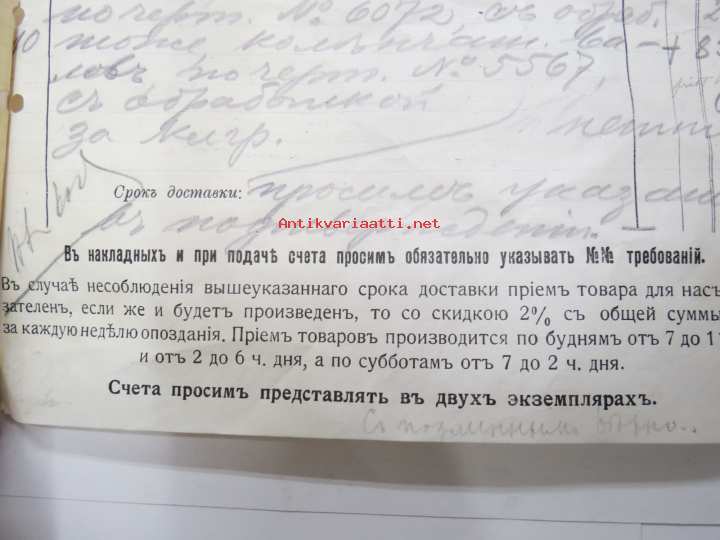 по черт. № 6072, съ обраб. 2
10 тоже колѣнчат. ва-
ловъ по черт. № 5567,
съ обработкой
за клгр. нетто
Срокъ доставки: просимъ указа
въ подтвержденіи.
Antikvariaatti.net
Въ накладныхъ и при подачѣ счета просимъ обязательно указывать №№ требованій.
Въ случаѣ несоблюденія вышеуказаннаго срока доставки пріемъ товара для насъ
зателенъ, если же и будетъ произведенъ, то со скидкою 2% съ общей суммы
за каждую недѣлю опозданія. Пріемъ товаровъ производится по буднямъ отъ 7 до 1
и отъ 2 до 6 ч. дня, а по субботамъ отъ 7 до 2 ч. дня.
Счета просимъ представлять въ двухъ экземплярахъ.
Съ подлиннымъ вѣрно.